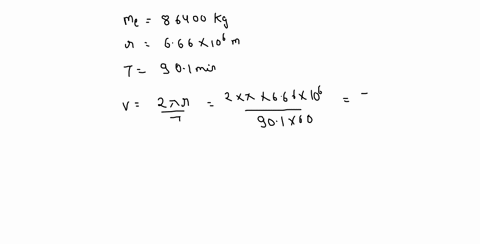 me = 86400 kg
r = 6.66 × 10⁶ m
T = 90.1 min
v = 2πr / T = 2 × π × 6.66 × 10⁶ / 90.1 × 60 = -